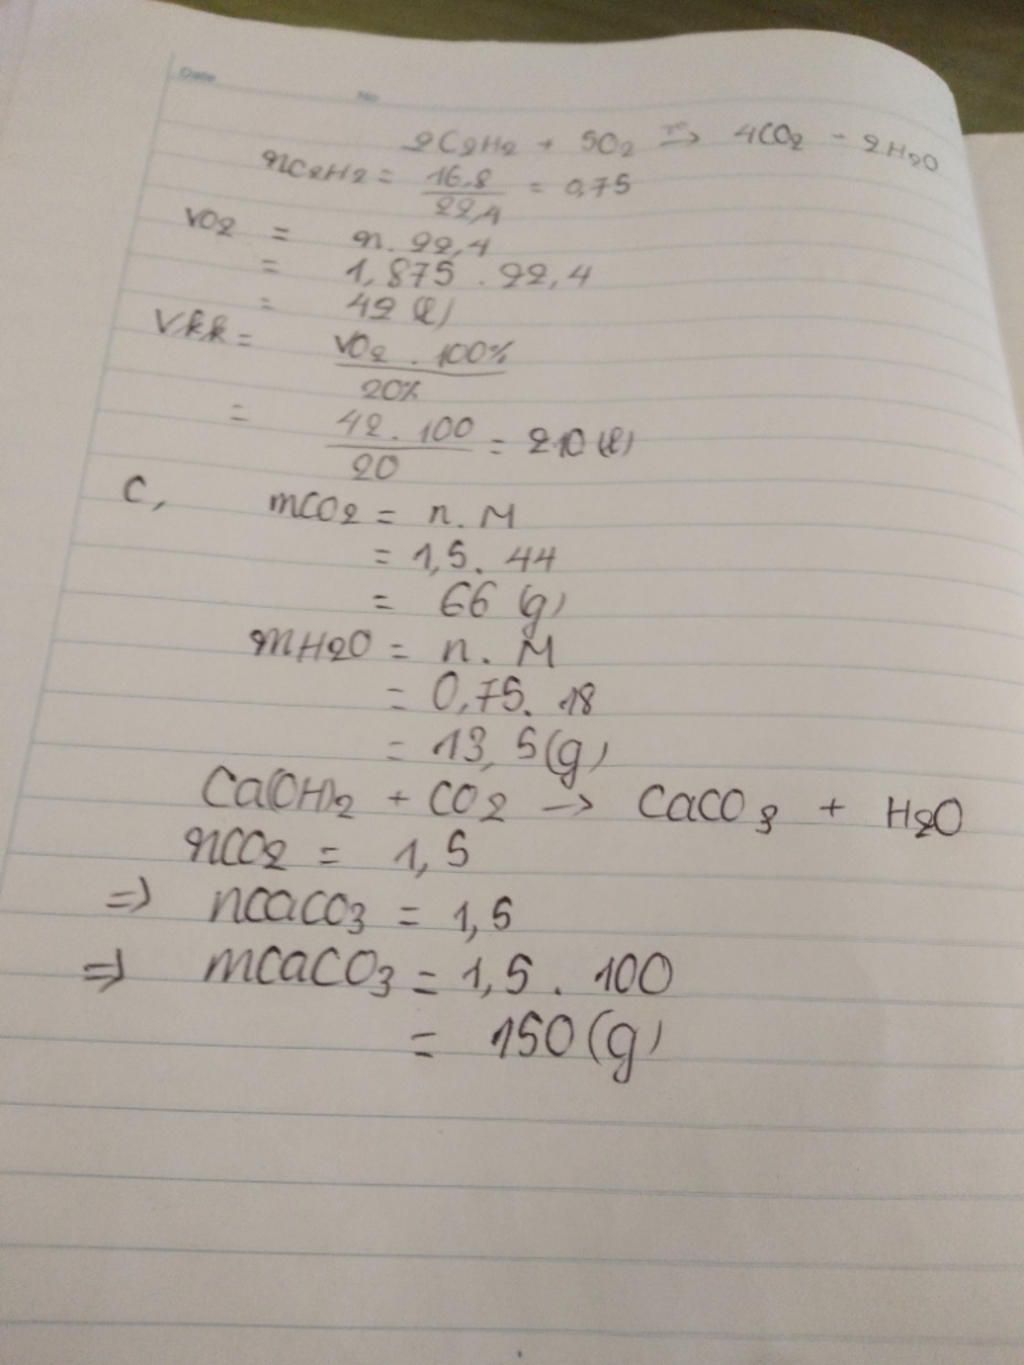 Date
No
2C2H2 + 5O2 t° → 4CO2 - 2H2O
nC2H2 = 16,8 / 22,4 = 0,75
VO2 = n. 22,4
= 1,875 . 22,4
= 42 (l)
Vkk = VO2 . 100% / 20%
= 42 . 100 / 20 = 210 (l)
C, mCO2 = n. M
= 1,5. 44
= 66 (g)
mH2O = n. M
= 0,75. 18
= 13,5(g)
Ca(OH)2 + CO2 → CaCO3 + H2O
nCO2 = 1,5
=> nCaCO3 = 1,5
=> mCaCO3 = 1,5 . 100
= 150(g)